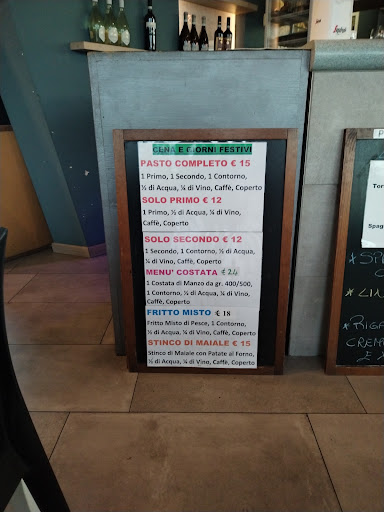 CENA E GIORNI FESTIVI
PASTO COMPLETO € 15
1 Primo, 1 Secondo, 1 Contorno,
½ di Acqua, ¼ di Vino, Caffè, Coperto
SOLO PRIMO € 12
1 Primo, ½ di Acqua, ¼ di Vino,
Caffè, Coperto
SOLO SECONDO € 12
1 Secondo, 1 Contorno, ½ di Acqua,
¼ di Vino, Caffè, Coperto
MENU' COSTATA € 24
1 Costata di Manzo da gr. 400/500,
1 Contorno, ½ di Acqua, ¼ di Vino,
Caffè, Coperto
FRITTO MISTO € 18
Fritto Misto di Pesce, 1 Contorno,
½ di Acqua, ¼ di Vino, Caffè, Coperto
STINCO DI MAIALE € 15
Stinco di Maiale con Patate al Forno,
½ di Acqua, ¼ di Vino, Caffè, Coperto